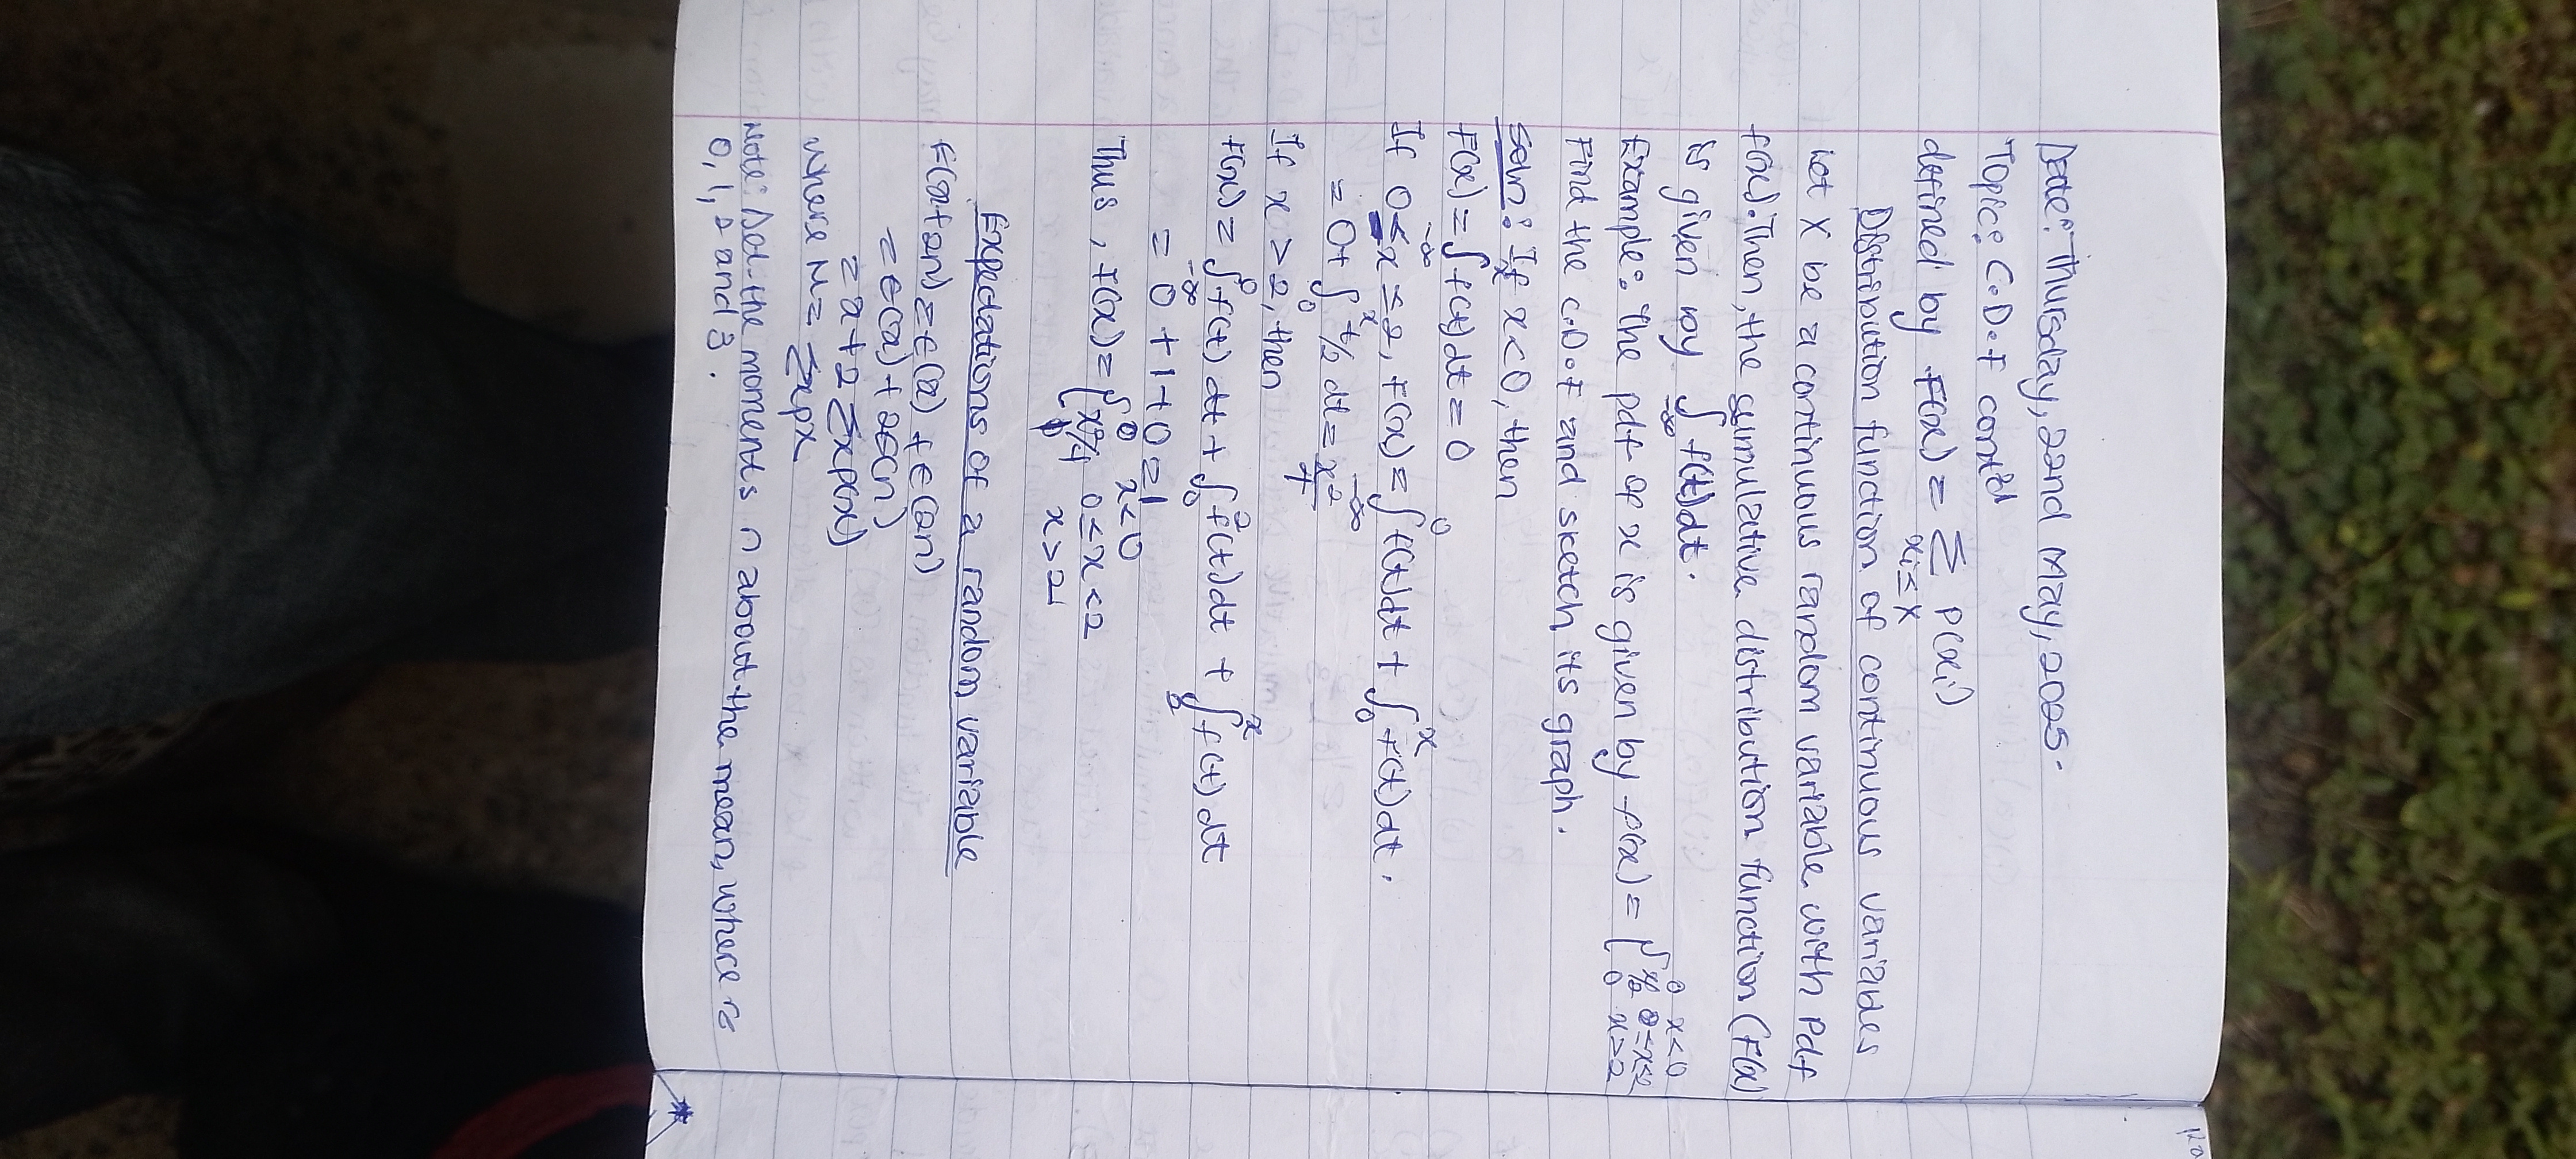 Date: Thursday, 22nd May, 2025.
Topic: C.D.F cont'd
defined by F(x) = Σ P(xi)
xi ≤ X
Distribution function of continuous variables
Let X be a continuous random variable with Pdf
f(x). Then, the cumulative distribution function (F(x)
is given by ∫-∞ f(t)dt.
Example: The pdf of x is given by f(x) = { 0 x<0
x/2 0≤x≤2
0 x>2
Find the C.D.F and sketch its graph.
Soln: If x<0, then
F(x) = ∫-∞^x f(t)dt = 0
If 0≤x≤2, F(x) = ∫-∞^0 f(t)dt + ∫0^x f(t)dt.
= 0+ ∫0^x t/2 dt = x²/4
If x>2, then
F(x) = ∫-∞^0 f(t)dt + ∫0^2 f(t)dt + ∫2^x f(t)dt
= 0 + 1 + 0 = 1
Thus, F(x) = { 0 x<0
x²/4 0≤x<2
1 x>2
Expectations of a random variable
= a + 2 Σxp(x)
where M = Σxpx
Note: the moments n about the mean, where r=
0, 1, 2 and 3.